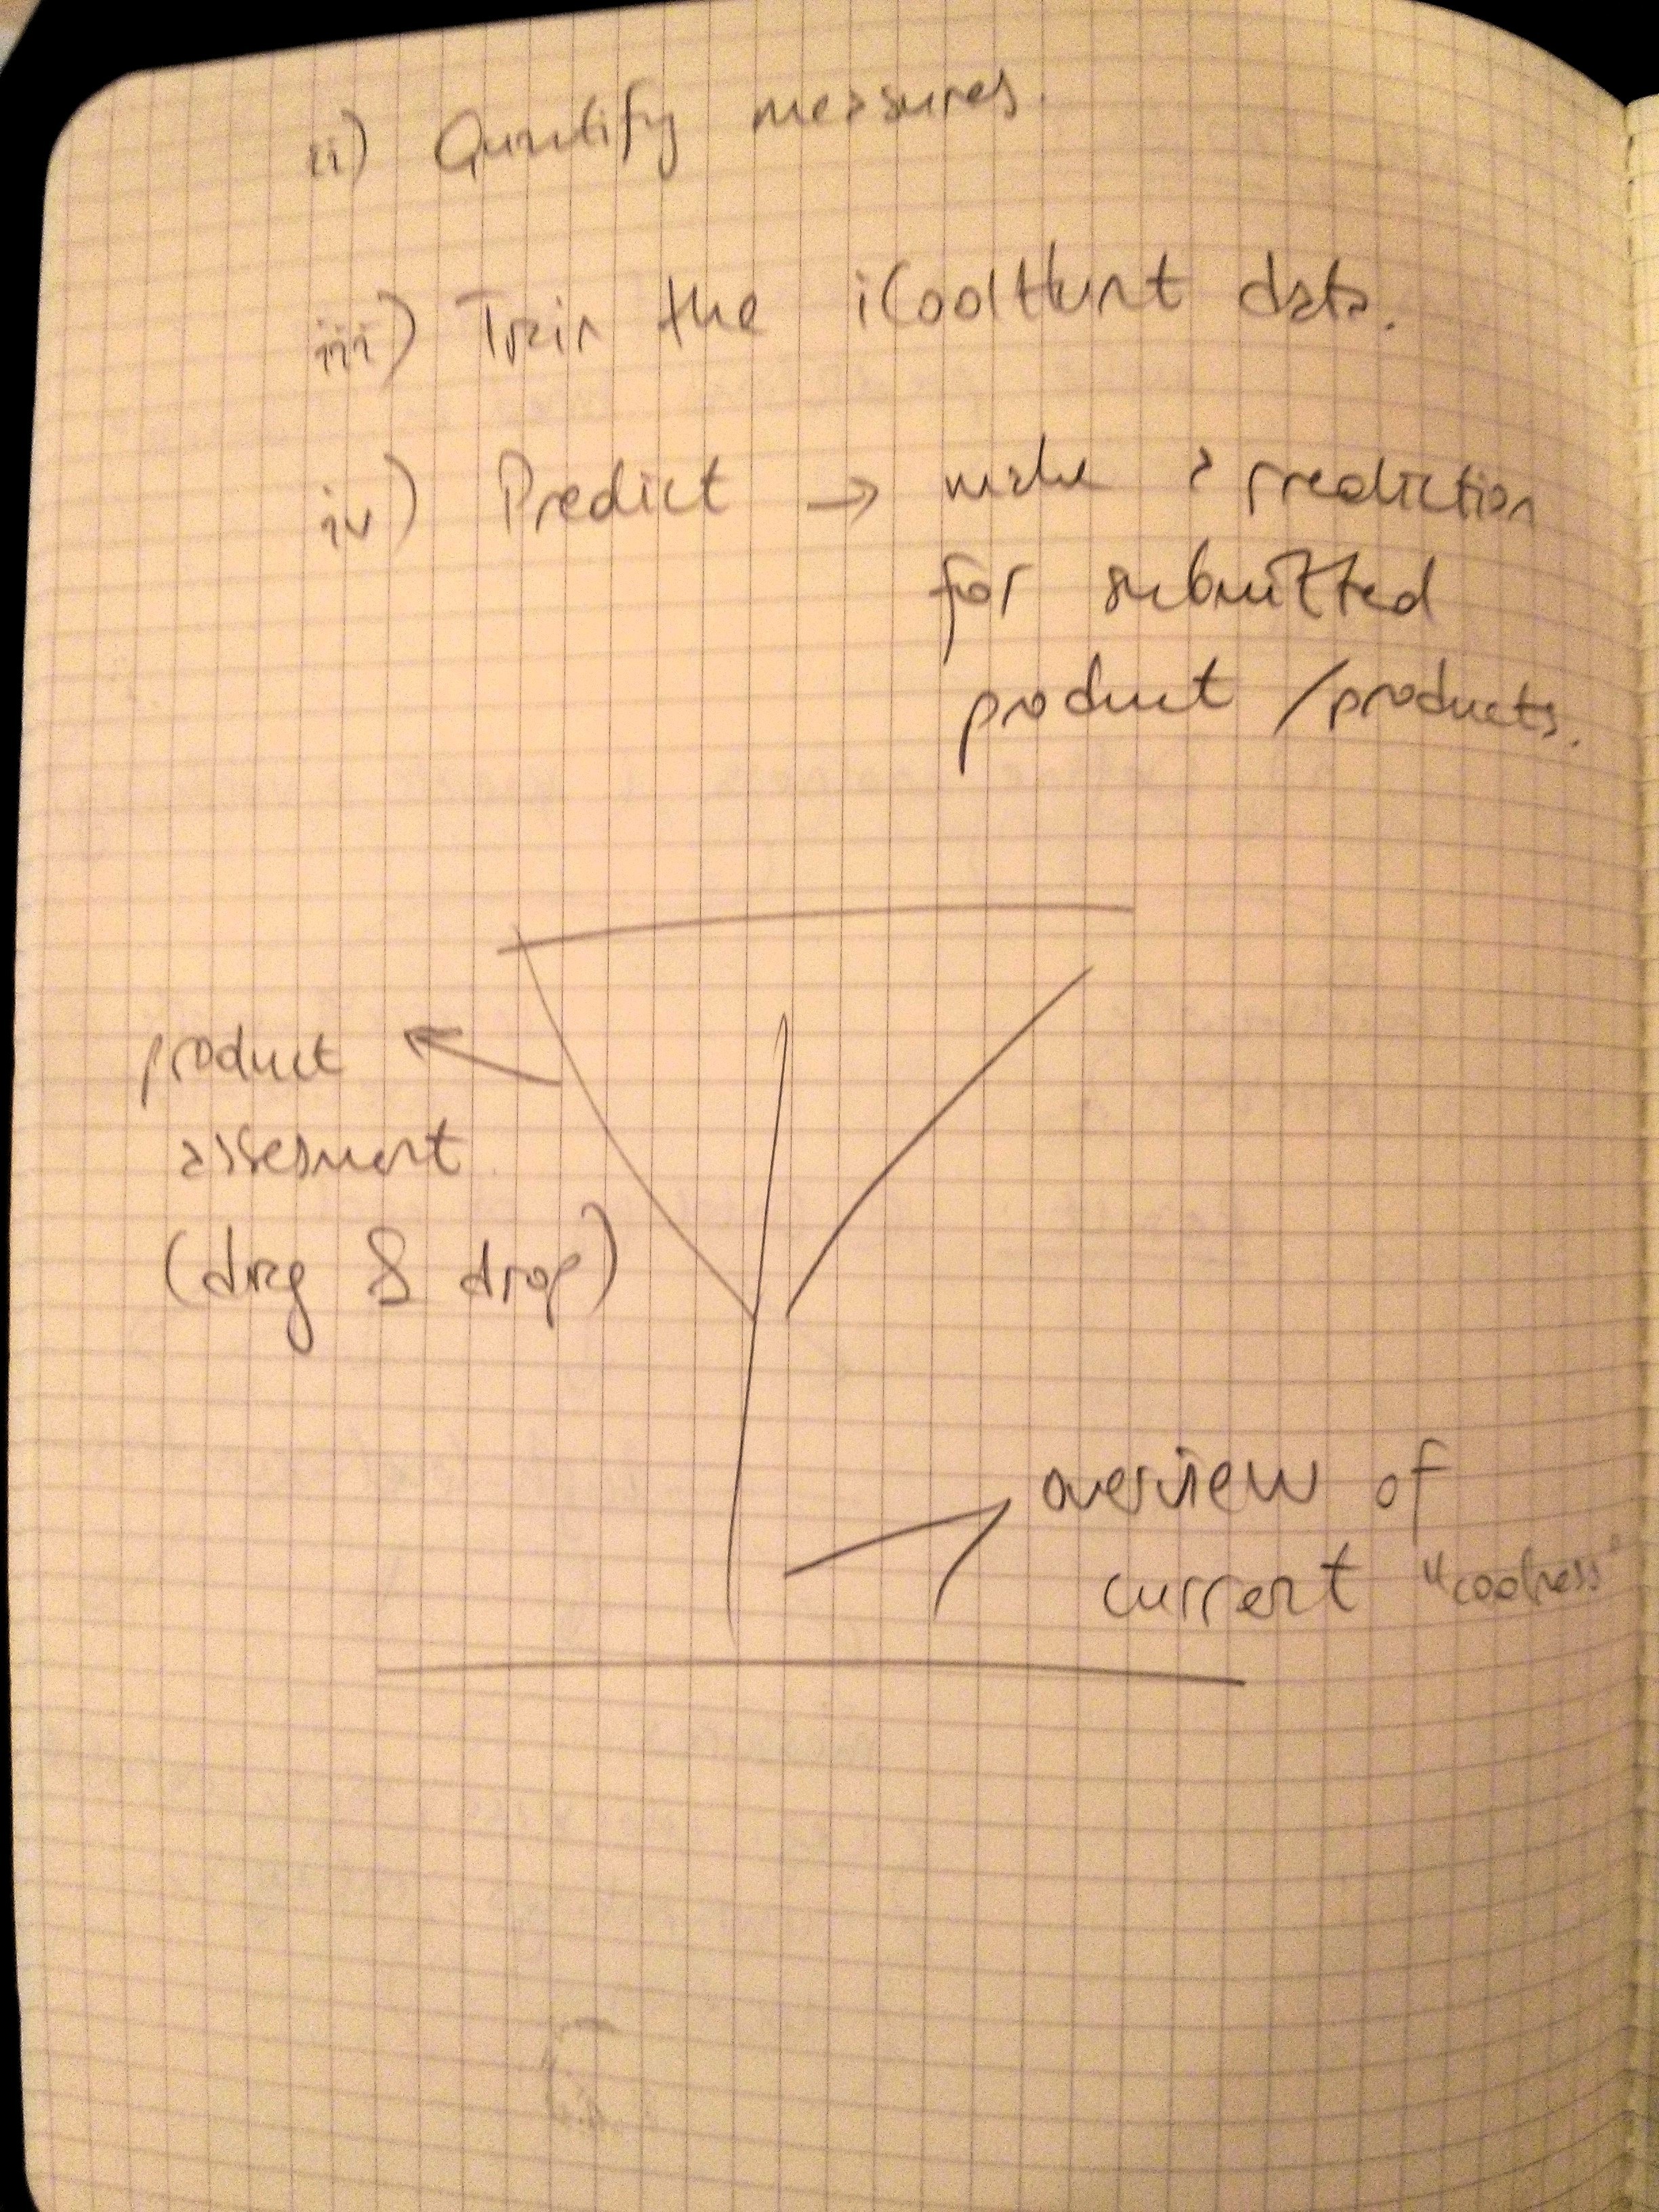 ii) Quantify measures.
iii) Train the iCoolHunt data.
iv) Predict → make a prediction
for submitted
product / products.
product
assesment
(drag & drop)
overview of
current "coolness"